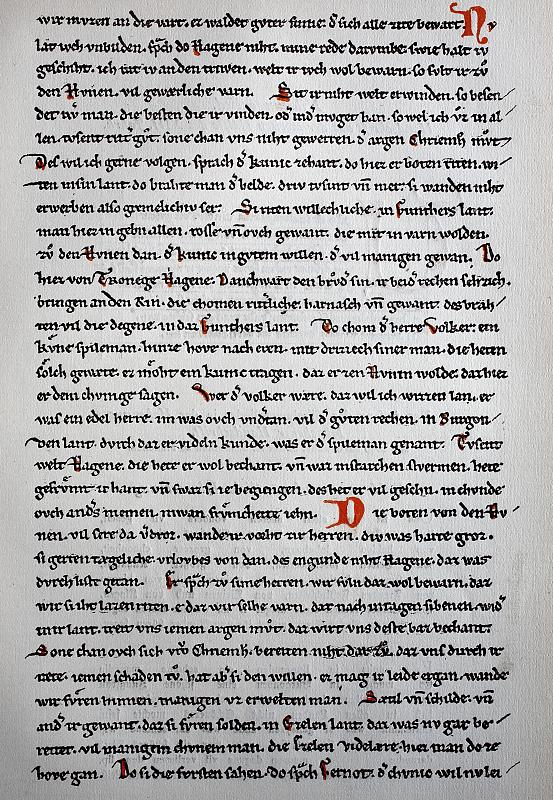 wir mvzen an die vart. er waldet gvter sinne. d sich alle zite bewart. Nv
lat iwch vnbilden. sprach do Hagene niht. mine rede darvmbe. swie halt iv
geschiht. ich rat iv an den triwen. welt ir iwch wol bewarn. so svlt ir zv
den Hvnen. vil gewærliche varn. Sit ir niht welt erwinden. so besen
det iwer man. die besten die ir vinden. od ind mvget han. so wel ich vz in al
len. tvsent ritter gvt. sone chan vns niht gewerren. d argen Chriemh mvt
Des wil ich gerne volgen. sprach d kunic zehant. do hiez er boten riten. wi
ten in sin lant. do brahte man d helde. driv tvsunt vn mer. si wanden niht
erwerben also gremelichiv ser. Si riten willechliche. in Gunthers lant.
man hiez in gebn allen. rosse vn ovch gewant. die mit in varn wolden.
zv den Hvnen dan. d kunic in gvtem willen. d vil manigen gewan. Do
hiez von Tronege Hagene. Danchwart den brvd sin. ir beid rechen sehzich.
bringen an den Rin. die chomen ritterliche. harnasch vn gewant. des brah
ten vil die degene. in daz Gunthers lant. Do chom d herre Volker. ein
kvne spileman. hinze hove nach eren. mit drizzech siner man. die heten
solch gewæte. ez moht ein kunic tragen. daz er zen Hvnin wolde. daz hiez
er dem chunige sagen. Wer d volker wære. daz wil ich wizzen lan. er
was ein edel herre. im was ovch vndtan. vil d gvten rechen. in Burgon
den lant. dvrch daz er videln kunde. was er d spileman genant. Tvsent
welt Hagene. die hete er wol bechant. vn waz in starchen stvrmen. hete
gefrvmt ir hant. vn swaz si ie begiengen. des het er vil gesehn. in chvnde
ovch ands niemen. niwan frvmecheite iehn. Die boten von den Hv
nen. vil sere da vdroz. wande ir vorht zir herren. div was harte groz.
si gerten tægeliche. vrlovbes von dan. des engunde niht Hagene. daz was
dvrch list getan. Er sprach zv sime herren. wir svln daz wol bewarn. daz
wir si iht lazen riten. e daz wir selbe varn. dar nach in tagen sibenen. wid
in ir lant. treit vns iemen argen mvt. daz wirt vns deste baz bechant.
Sone chan ovch sich vro Chriemh. bereiten niht dar zv. daz vns dvrch ir
ræte. iemen schaden tv. hat ab si den willen. ez mag ir leide ergan. wande
wir fvren hinnen. manigen vz erwelten man. Sætel vn schilde. vn
and ir gewant. daz si fvren solden. in Ezelen lant. daz was nv gar be
reitet. vil manigem chvnem man. die Ezelen videlære. hiez man do ze
hove gan. Do si die fvrsten sahen. do sprach Gernot. d chvnic wil nv lei